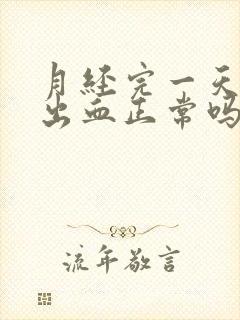 月经完一天
出血正常吗
流年敬言